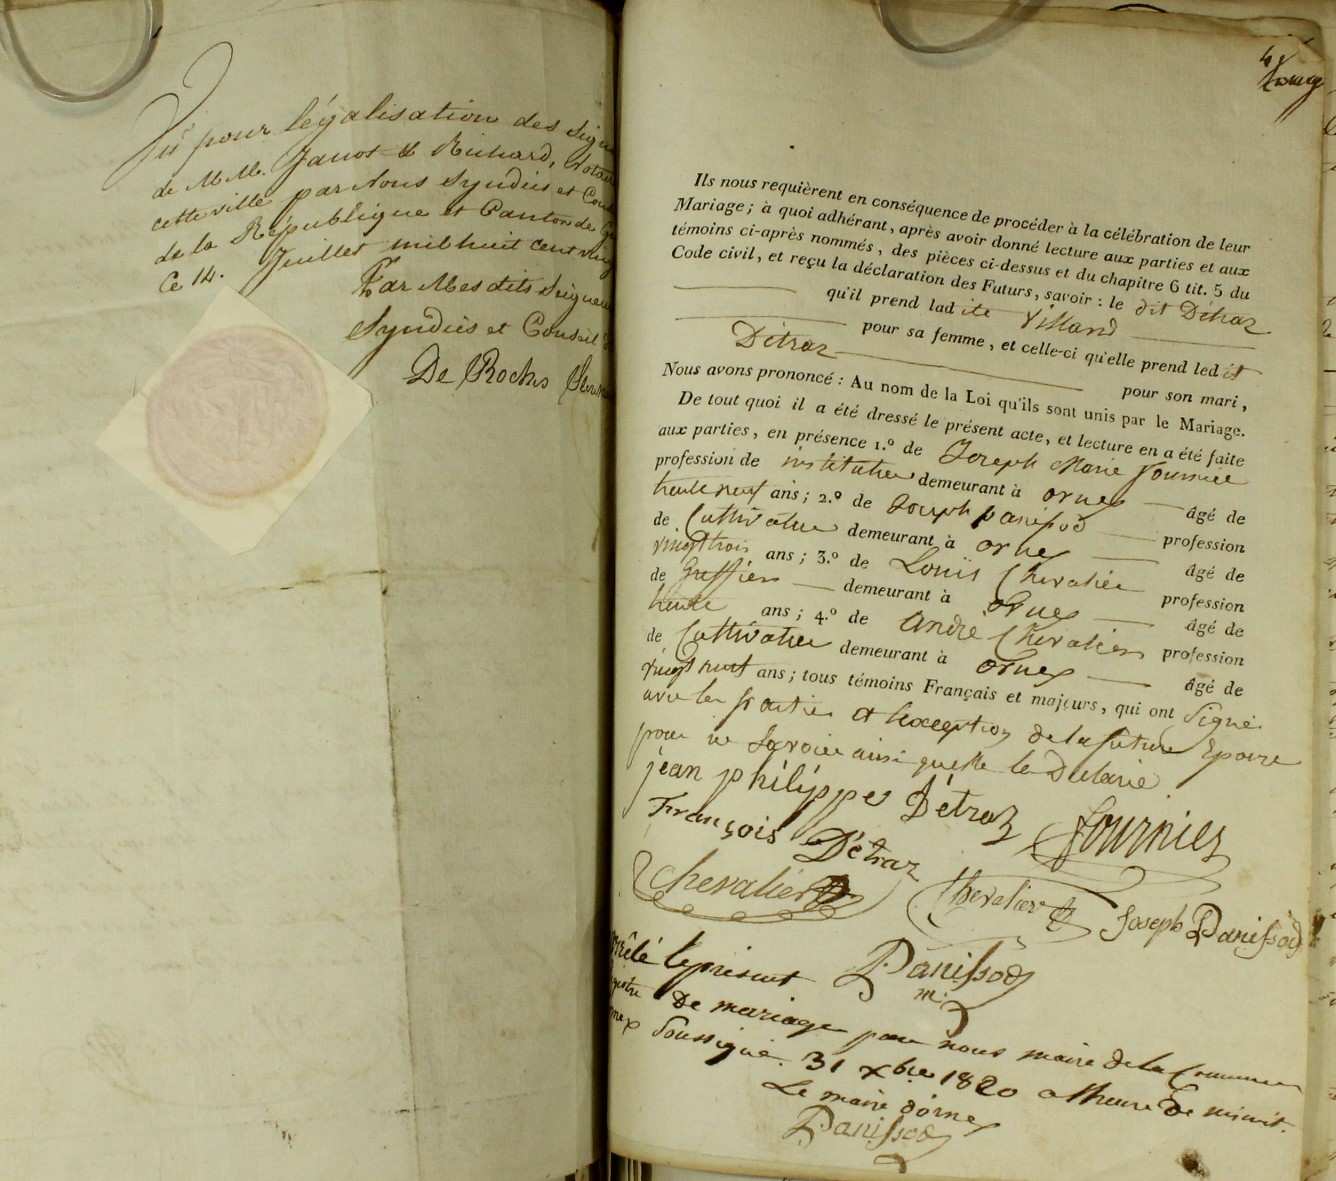 Vu pour légalisation des Sign
de MM. Janot & Richard, Notair
cette ville par Nous Syndics et Cons
de la République et Canton de Ge
Ce 14. Juillet mil huit cent ving
Par Mesdits Seigneu
Syndics et Conseil
De Roches
Ils nous requièrent en conséquence de procéder à la célébration de leur
Mariage; à quoi adhérant, après avoir donné lecture aux parties et aux
témoins ci-après nommés, des pièces ci-dessus et du chapitre 6 tit. 5 du
Code civil, et reçu la déclaration des Futurs, savoir : le dit Détraz
qu'il prend ladite Villard
pour sa femme, et celle-ci qu'elle prend ledit
Détraz pour son mari,
Nous avons prononcé : Au nom de la Loi qu'ils sont unis par le Mariage.
De tout quoi il a été dressé le présent acte, et lecture en a été faite
aux parties, en présence 1.º de Joseph Marie Fournier
profession de instituteur demeurant à ornex âgé de
trente neuf ans; 2.º de Joseph panissod profession
de Cultivateur demeurant à ornex âgé de
vingt trois ans; 3.º de Louis Chevalier profession
de Greffier demeurant à ornex âgé de
trente ans; 4.º de André Chevalier profession
de Cultivateur demeurant à ornex âgé de
vingt neuf ans; tous témoins Français et majeurs, qui ont Signé
avec les parties a l'exception de la future Epouse
pour ne Savoir ainsi quelle le Déclaré
jean philippes Détraz Fournier
François Détraz
Chevalier Chevalier Joseph Panissod
arrêté le présent Panissod
m.
De mariage par nous maire de la Commune
Soussigné. 31 xbre 1820 a lheure De minuit.
Le maire d'ornex
Panissod